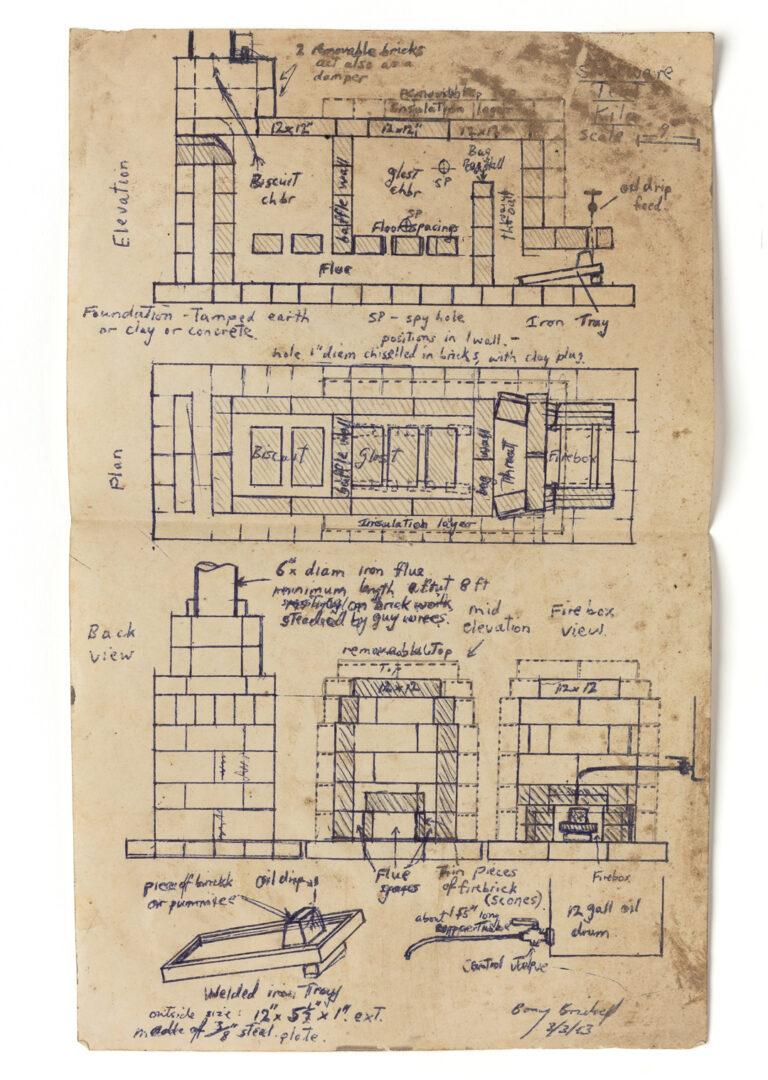 2 removable bricks
act also as a
damper
Stoneware
Test
Kiln
scale 9"
removable top
Insulation layer
12x12"
12x12"
12x12"
Elevation
Biscuit
chbr
baffle wall
glost
chbr
SP
Bag
wall
throat
oil drip
feed.
SP
Floor spacings
Flue
Foundation - Tamped earth
or clay or concrete.
SP - spy hole
positions in 1 wall. -
hole 1" diam chiselled in bricks, with clay plug.
Iron Tray
Plan
Biscuit
baffle wall
Glost
bag wall
Throat
Firebox
Insulation layer
6" diam iron flue
minimum length about 8 ft
resting on brick work
steadied by guy wires.
Back
view
mid
elevation
Firebox
view.
removable Top
Top
12x12
12x12
piece of brick
or pummice
Oil drip
Flue
spaces
Thin pieces
of firebrick
(scones).
Firebox
about 15" long
copper tube
12 gall oil
drum.
Control valve
Welded iron Tray
outside size: 12" x 5½" x 1" ext.
made of 3/8" steel plate.
3/3/63